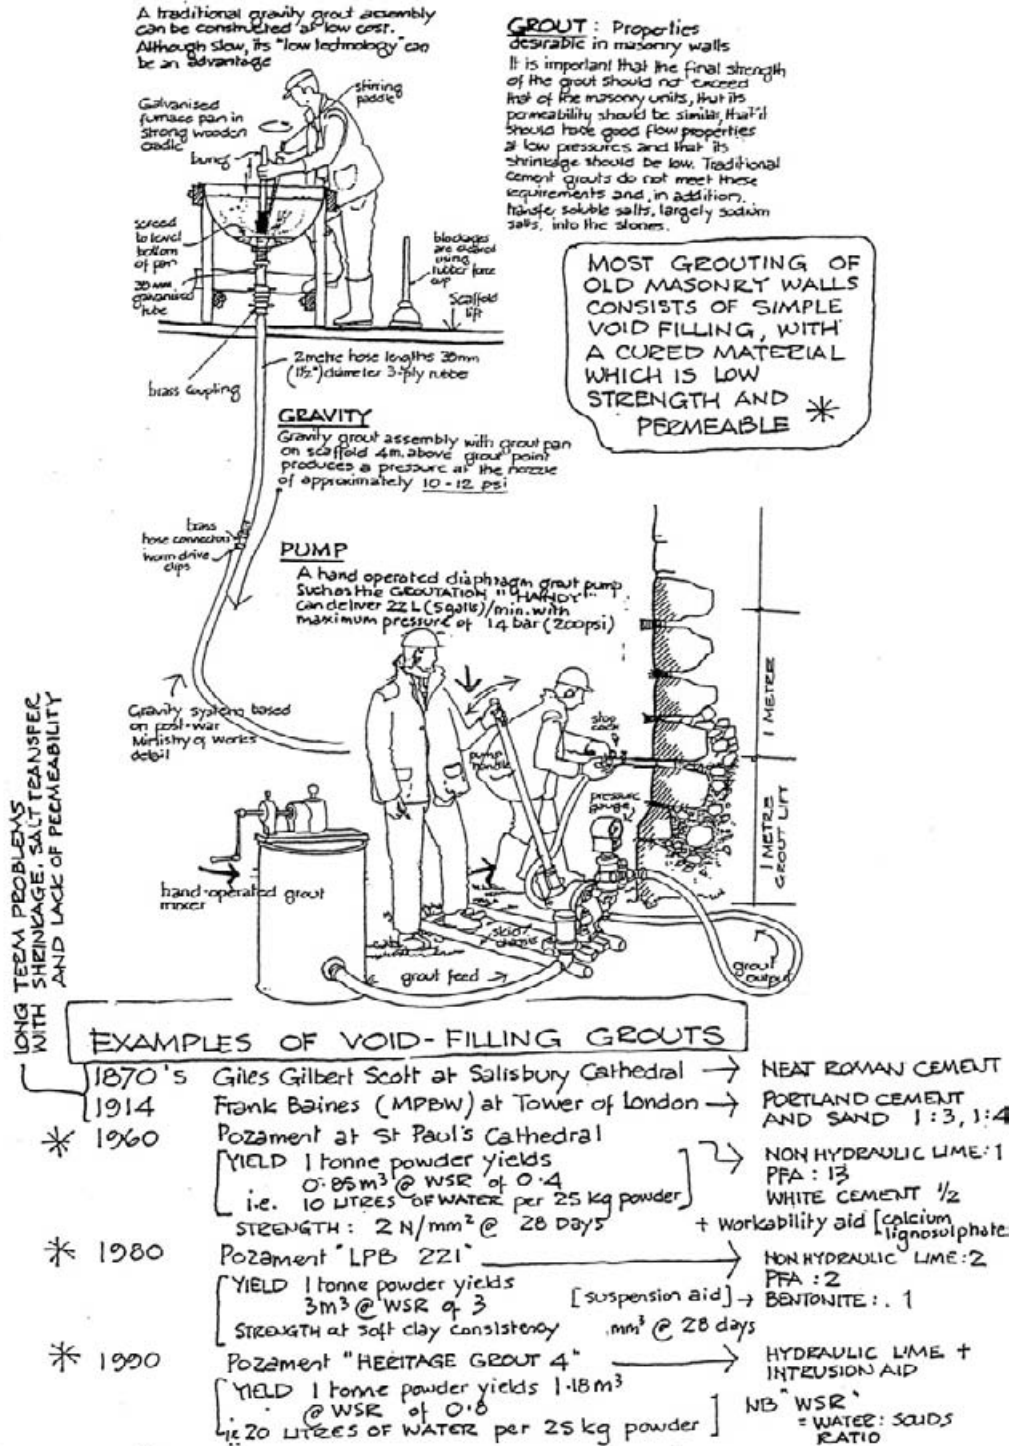 A traditional gravity grout assembly
can be constructed at low cost.
Although slow, its "low technology" can
be an advantage
stirring
paddle
Galvanised
furnace pan in
strong wooden
cradle
bung
screed
to level
bottom
of pan
38 mm
galvanised
tube
blockages
are cleared
using
rubber force
cup
Scaffold
lift
2 metre hose lengths 38mm
(1½") diameter 3-ply rubber
brass coupling
GROUT : Properties
desirable in masonry walls
It is important that the final strength
of the grout should not exceed
that of the masonry units, that its
permeability should be similar, that it
should have good flow properties
at low pressures and that its
shrinkage should be low. Traditional
cement grouts do not meet these
requirements and, in addition,
transfer soluble salts, largely sodium
salts, into the stones.
MOST GROUTING OF
OLD MASONRY WALLS
CONSISTS OF SIMPLE
VOID FILLING, WITH
A CURED MATERIAL
WHICH IS LOW
STRENGTH AND
PERMEABLE *
GRAVITY
Gravity grout assembly with grout pan
on scaffold 4m. above grout point
produces a pressure at the nozzle
of approximately 10-12 psi
brass
hose connector
worm drive
clips
PUMP
A hand operated diaphragm grout pump
Such as the GROUTATION "HANDY"
can deliver 22 L (5galls)/min. with
maximum pressure of 14 bar (200psi)
Gravity system based
on post-war
Ministry of Works
detail
pump
handle
stop
cock
pressure
gauge
1 METRE
1 METRE
GROUT LIFT
hand-operated grout
mixer
skid/
chassis
grout feed
grout
output
LONG TERM PROBLEMS
WITH SHRINKAGE, SALT TRANSFER
AND LACK OF PERMEABILITY
EXAMPLES OF VOID-FILLING GROUTS
1870's Giles Gilbert Scott at Salisbury Cathedral → NEAT ROMAN CEMENT
1914 Frank Baines (MPBW) at Tower of London → PORTLAND CEMENT
AND SAND 1:3, 1:4
* 1960 Pozament at St Paul's Cathedral
[YIELD 1 tonne powder yields
0.85m³ @ WSR of 0.4
i.e. 10 LITRES OF WATER per 25 kg powder]
STRENGTH : 2 N/mm² @ 28 Days
NON HYDRAULIC LIME: 1
PFA : 13
WHITE CEMENT ½
+ workability aid [calcium
lignosulphate
* 1980 Pozament "LPB 221" → NON HYDRAULIC LIME: 2
[YIELD 1 tonne powder yields
3m³ @ WSR of 3
STRENGTH at soft clay consistency
PFA : 2
[suspension aid] → BENTONITE : . 1
mm³ @ 28 days
* 1990 Pozament "HERITAGE GROUT 4" → HYDRAULIC LIME +
INTRUSION AID
[YIELD 1 tonne powder yields 1.18m³
@ WSR of 0.8
ie 20 LITRES OF WATER per 25 kg powder]
NB "WSR"
= WATER: SOLIDS
RATIO